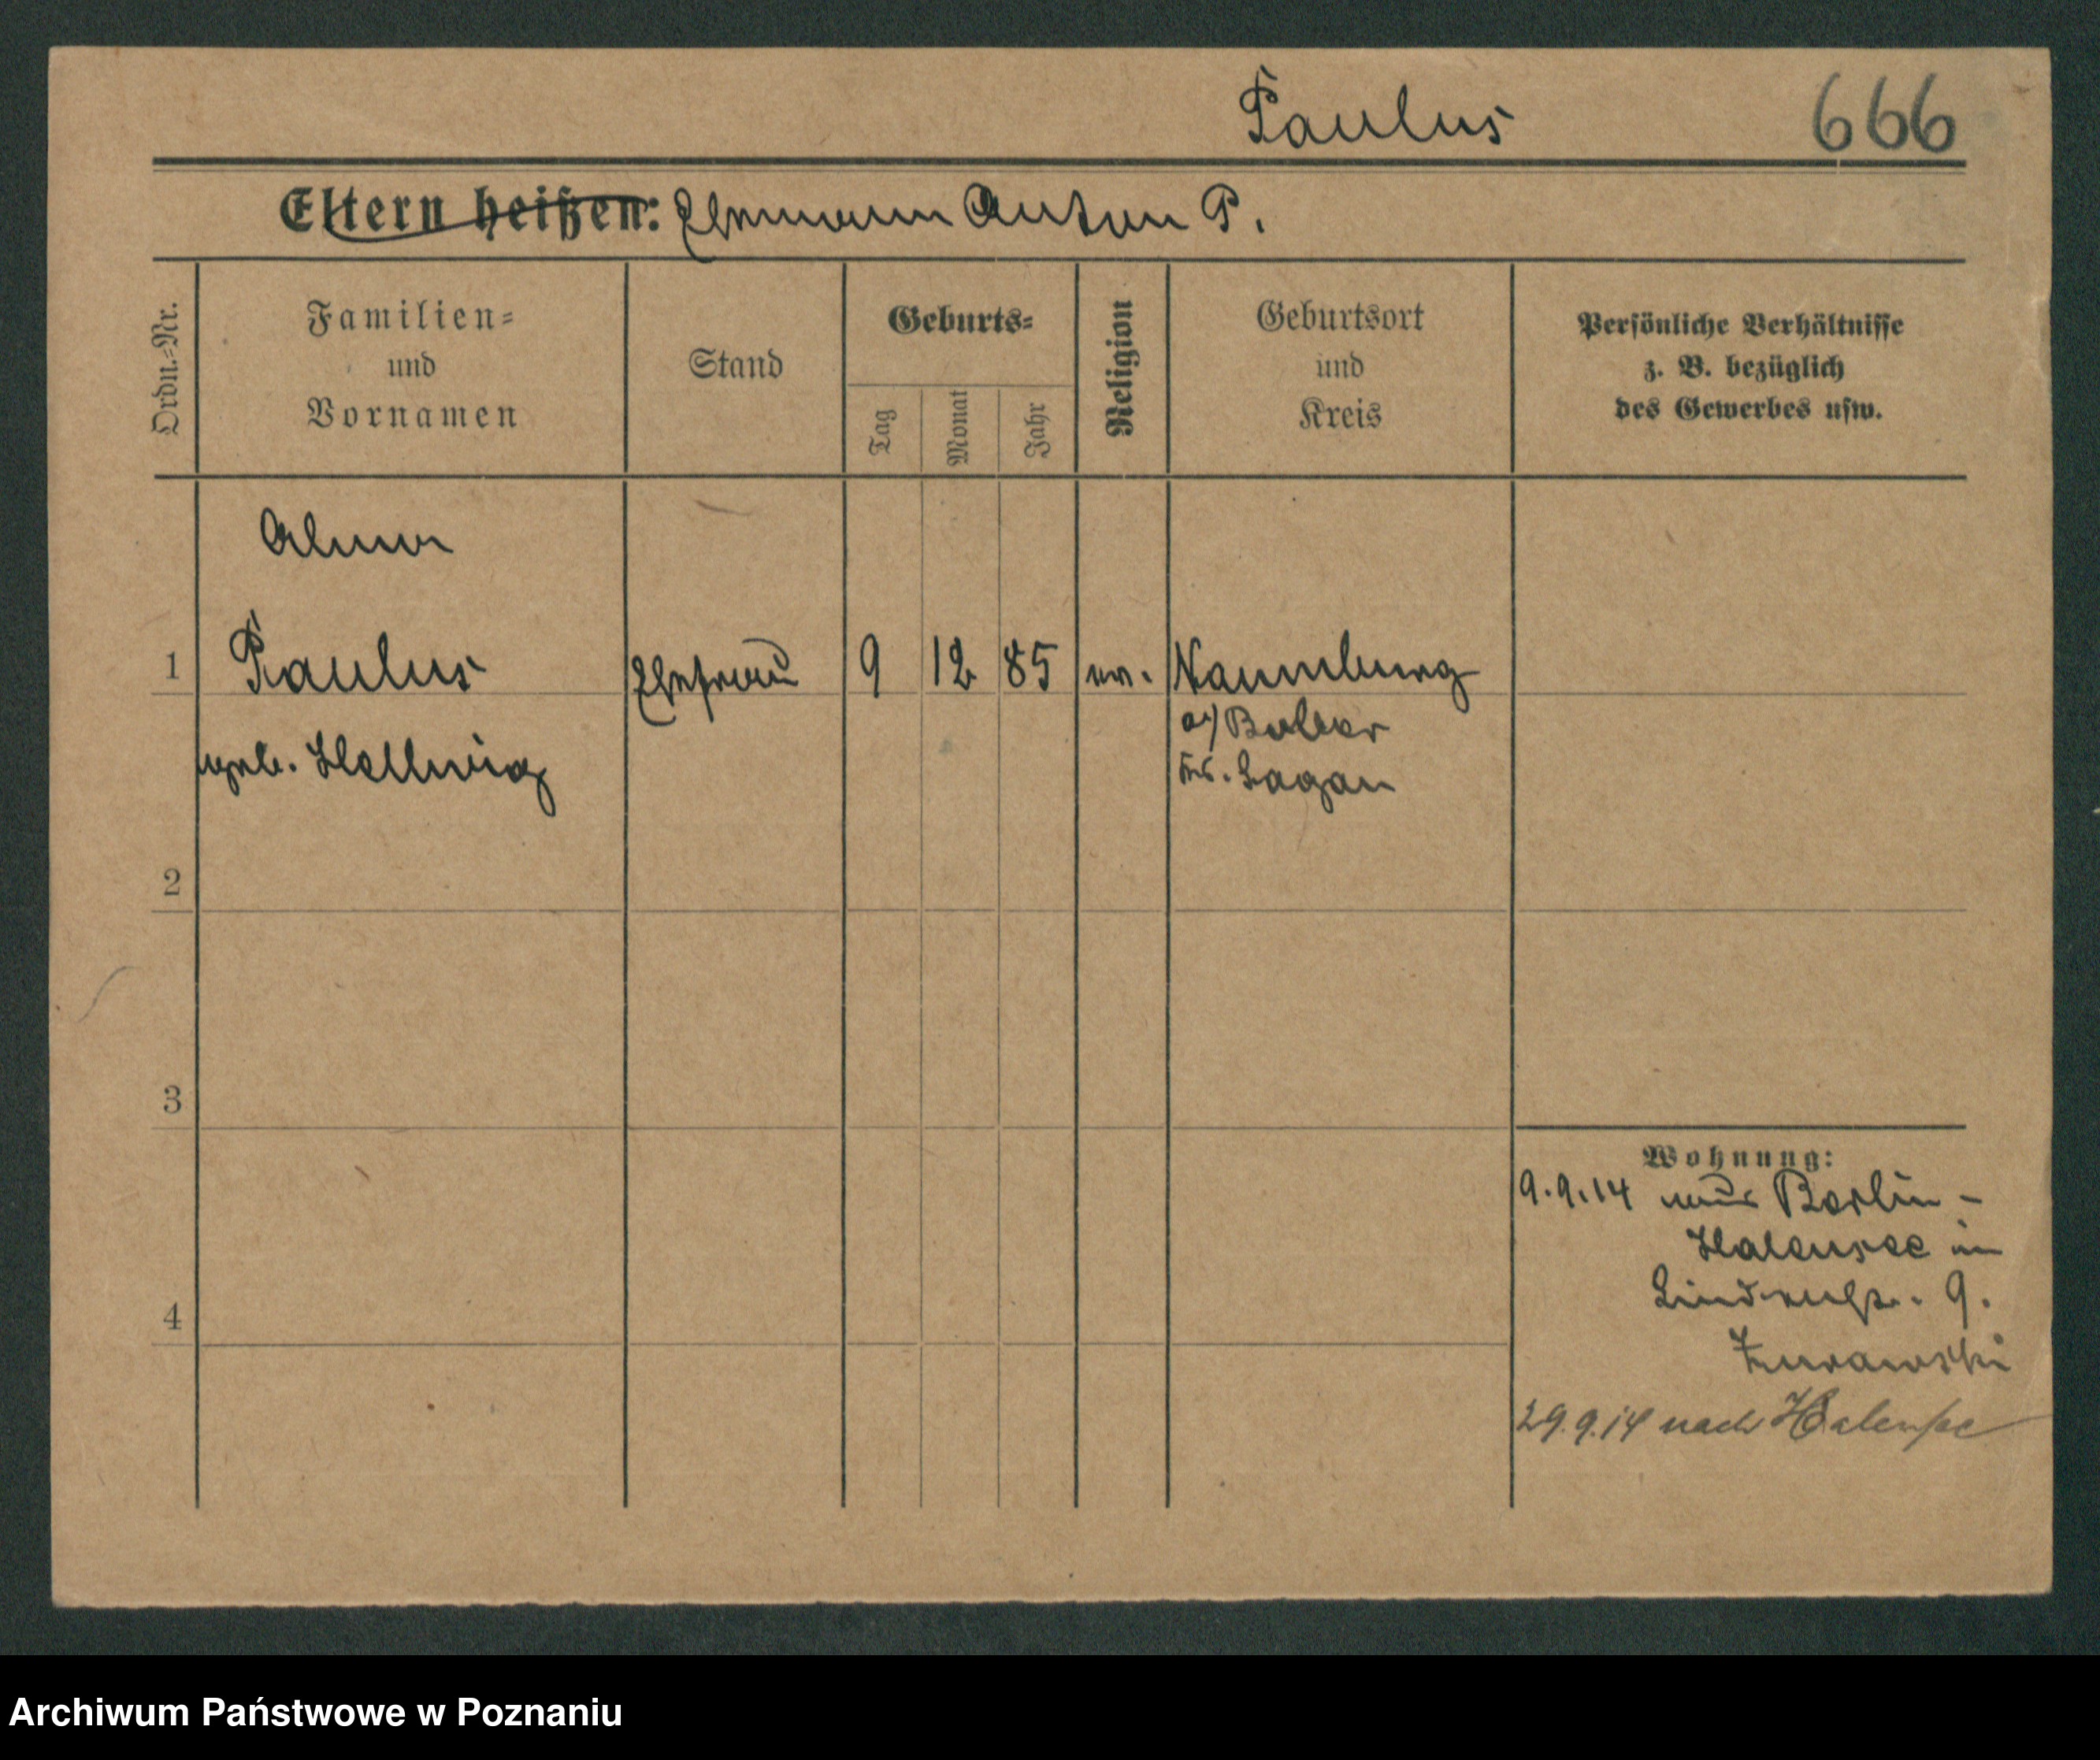 Paulus 666
Eltern heißen: Ehemann Anton P.
Ordn.=Nr.
Familien=
und
Vornamen
Stand
Geburts=
Tag
Monat
Jahr
Religion
Geburtsort
und
Kreis
Persönliche Verhältnisse
z. B. bezüglich
des Gewerbes usw.
Alma
1 Paulus Ehefrau 9 12 85 ev. Naumburg
a/ Bober
geb. Hellwig
Kr. Sagan
2
3
4
Wohnung:
9.9.14 aus Berlin-
Halensee in
9.
Zurawski
29.9.14 nach Halensee
Archiwum Państwowe w Poznaniu